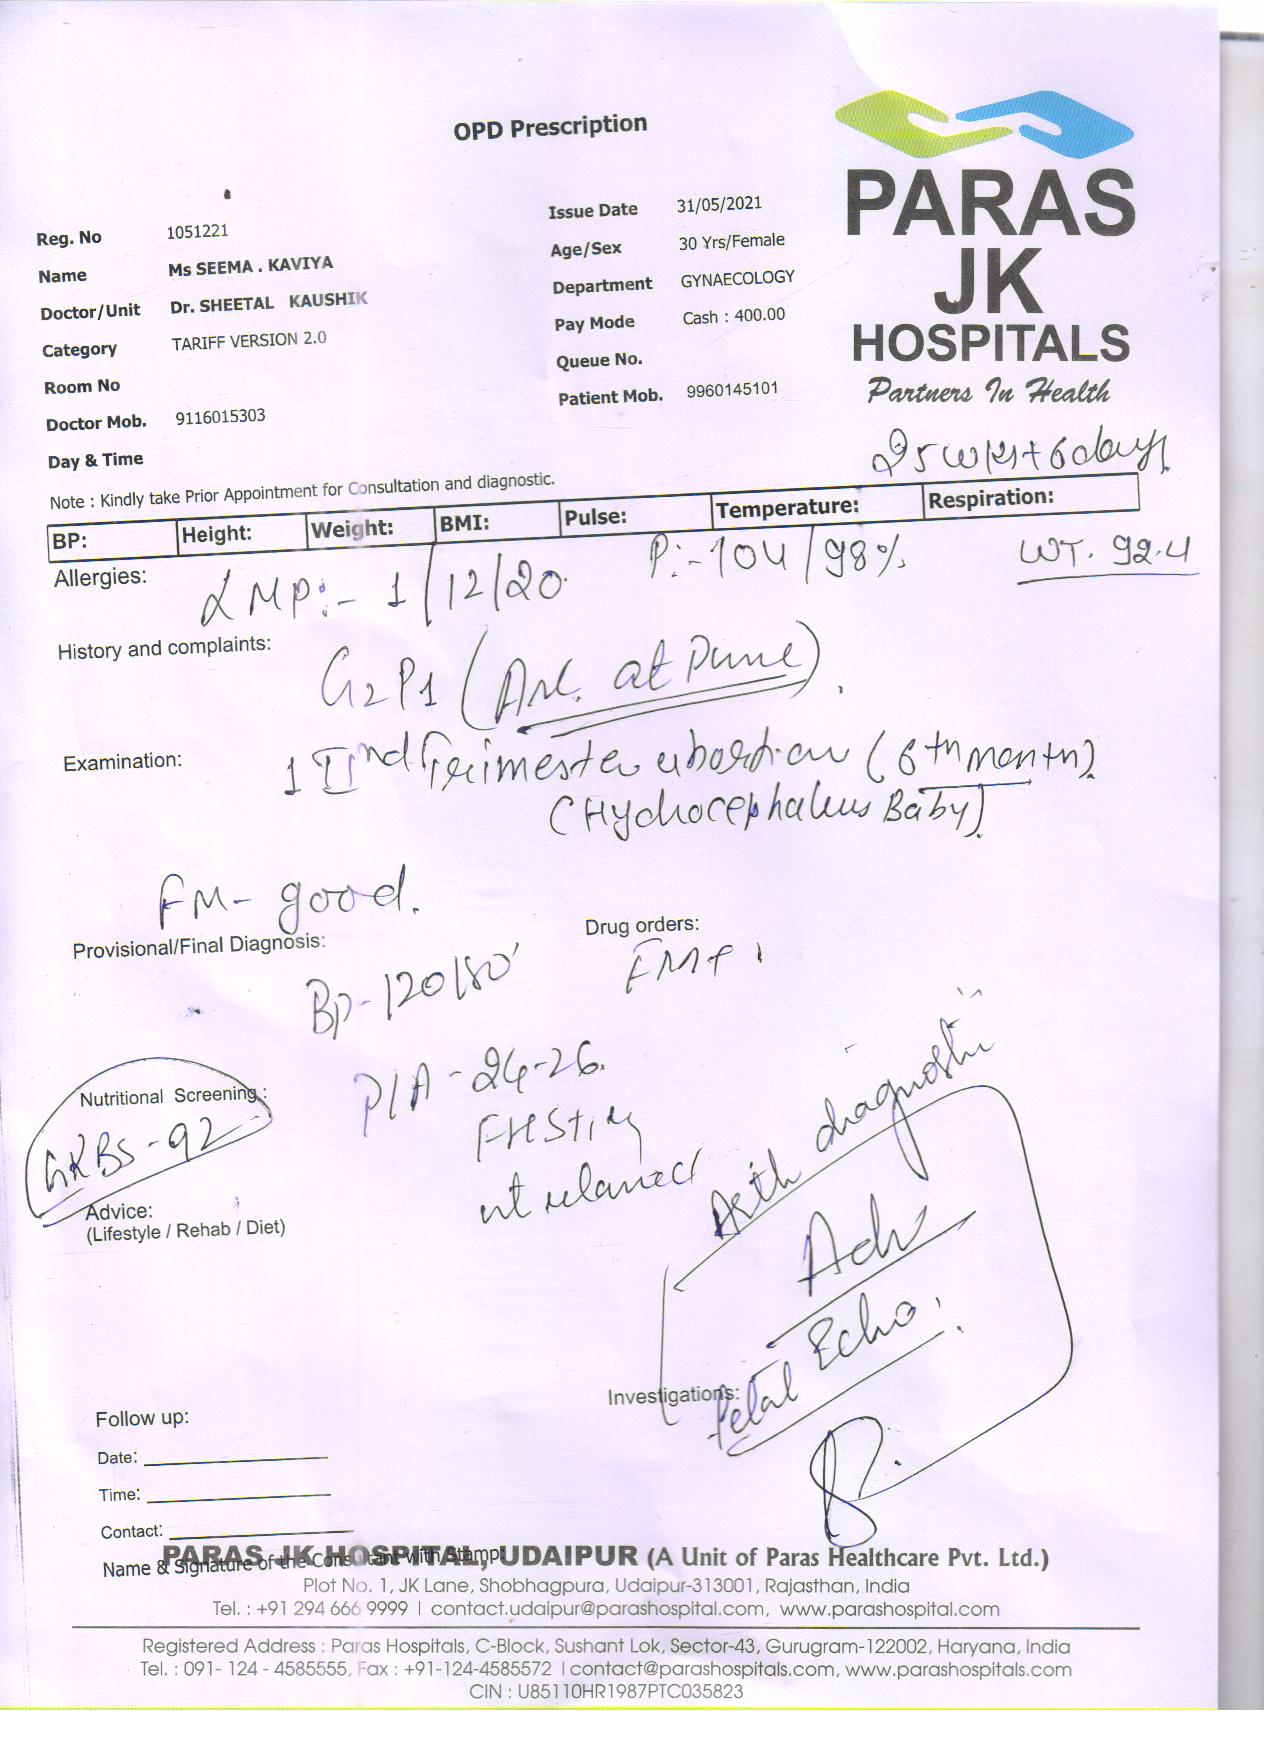 OPD Prescription
PARAS
JK
HOSPITALS
Partners In Health
Reg. No 1051221
Name Ms SEEMA . KAVIYA
Doctor/Unit Dr. SHEETAL KAUSHIK
Category TARIFF VERSION 2.0
Room No
Doctor Mob. 9116015303
Day & Time
Issue Date 31/05/2021
Age/Sex 30 Yrs/Female
Department GYNAECOLOGY
Pay Mode Cash : 400.00
Queue No.
Patient Mob. 9960145101
25 wks+6days
Note : Kindly take Prior Appointment for Consultation and diagnostic.
BP: Height: Weight: BMI: Pulse: Temperature: Respiration:
Allergies:
LMP:- 1/12/20 P:-104/98% WT. 92.4
History and complaints:
G2P1 (Anc. at Pune).
Examination:
1 IInd Trimester abortion (6th month)
(Hydrocephalus Baby)
FM- good.
Provisional/Final Diagnosis:
Drug orders:
BP-120/80
FM+
Nutritional Screening:
GRBS-92
P/A-24-26
FHS+
ut relaxed
Arth diagnostic
Advice:
(Lifestyle / Rehab / Diet)
Adv
Fetal Echo.
Investigations:
Follow up:
Date:
Time:
Contact:
Name & Signature of the Consultant with Stamp:
PARAS JK HOSPITAL, UDAIPUR (A Unit of Paras Healthcare Pvt. Ltd.)
Plot No. 1, JK Lane, Shobhagpura, Udaipur-313001, Rajasthan, India
Tel. : +91 294 666 9999 | contact.udaipur@parashospital.com, www.parashospital.com
Registered Address : Paras Hospitals, C-Block, Sushant Lok, Sector-43, Gurugram-122002, Haryana, India
Tel. : 091- 124 - 4585555, Fax : +91-124-4585572 | contact@parashospitals.com, www.parashospitals.com
CIN : U85110HR1987PTC035823